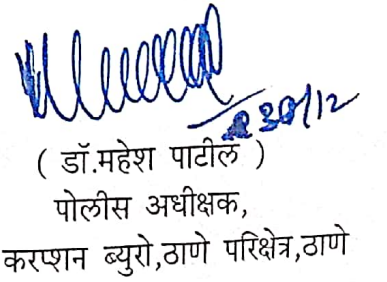 30/12
( डॉ.महेश पाटील )
पोलीस अधीक्षक,
करप्शन ब्युरो,ठाणे परिक्षेत्र,ठाणे